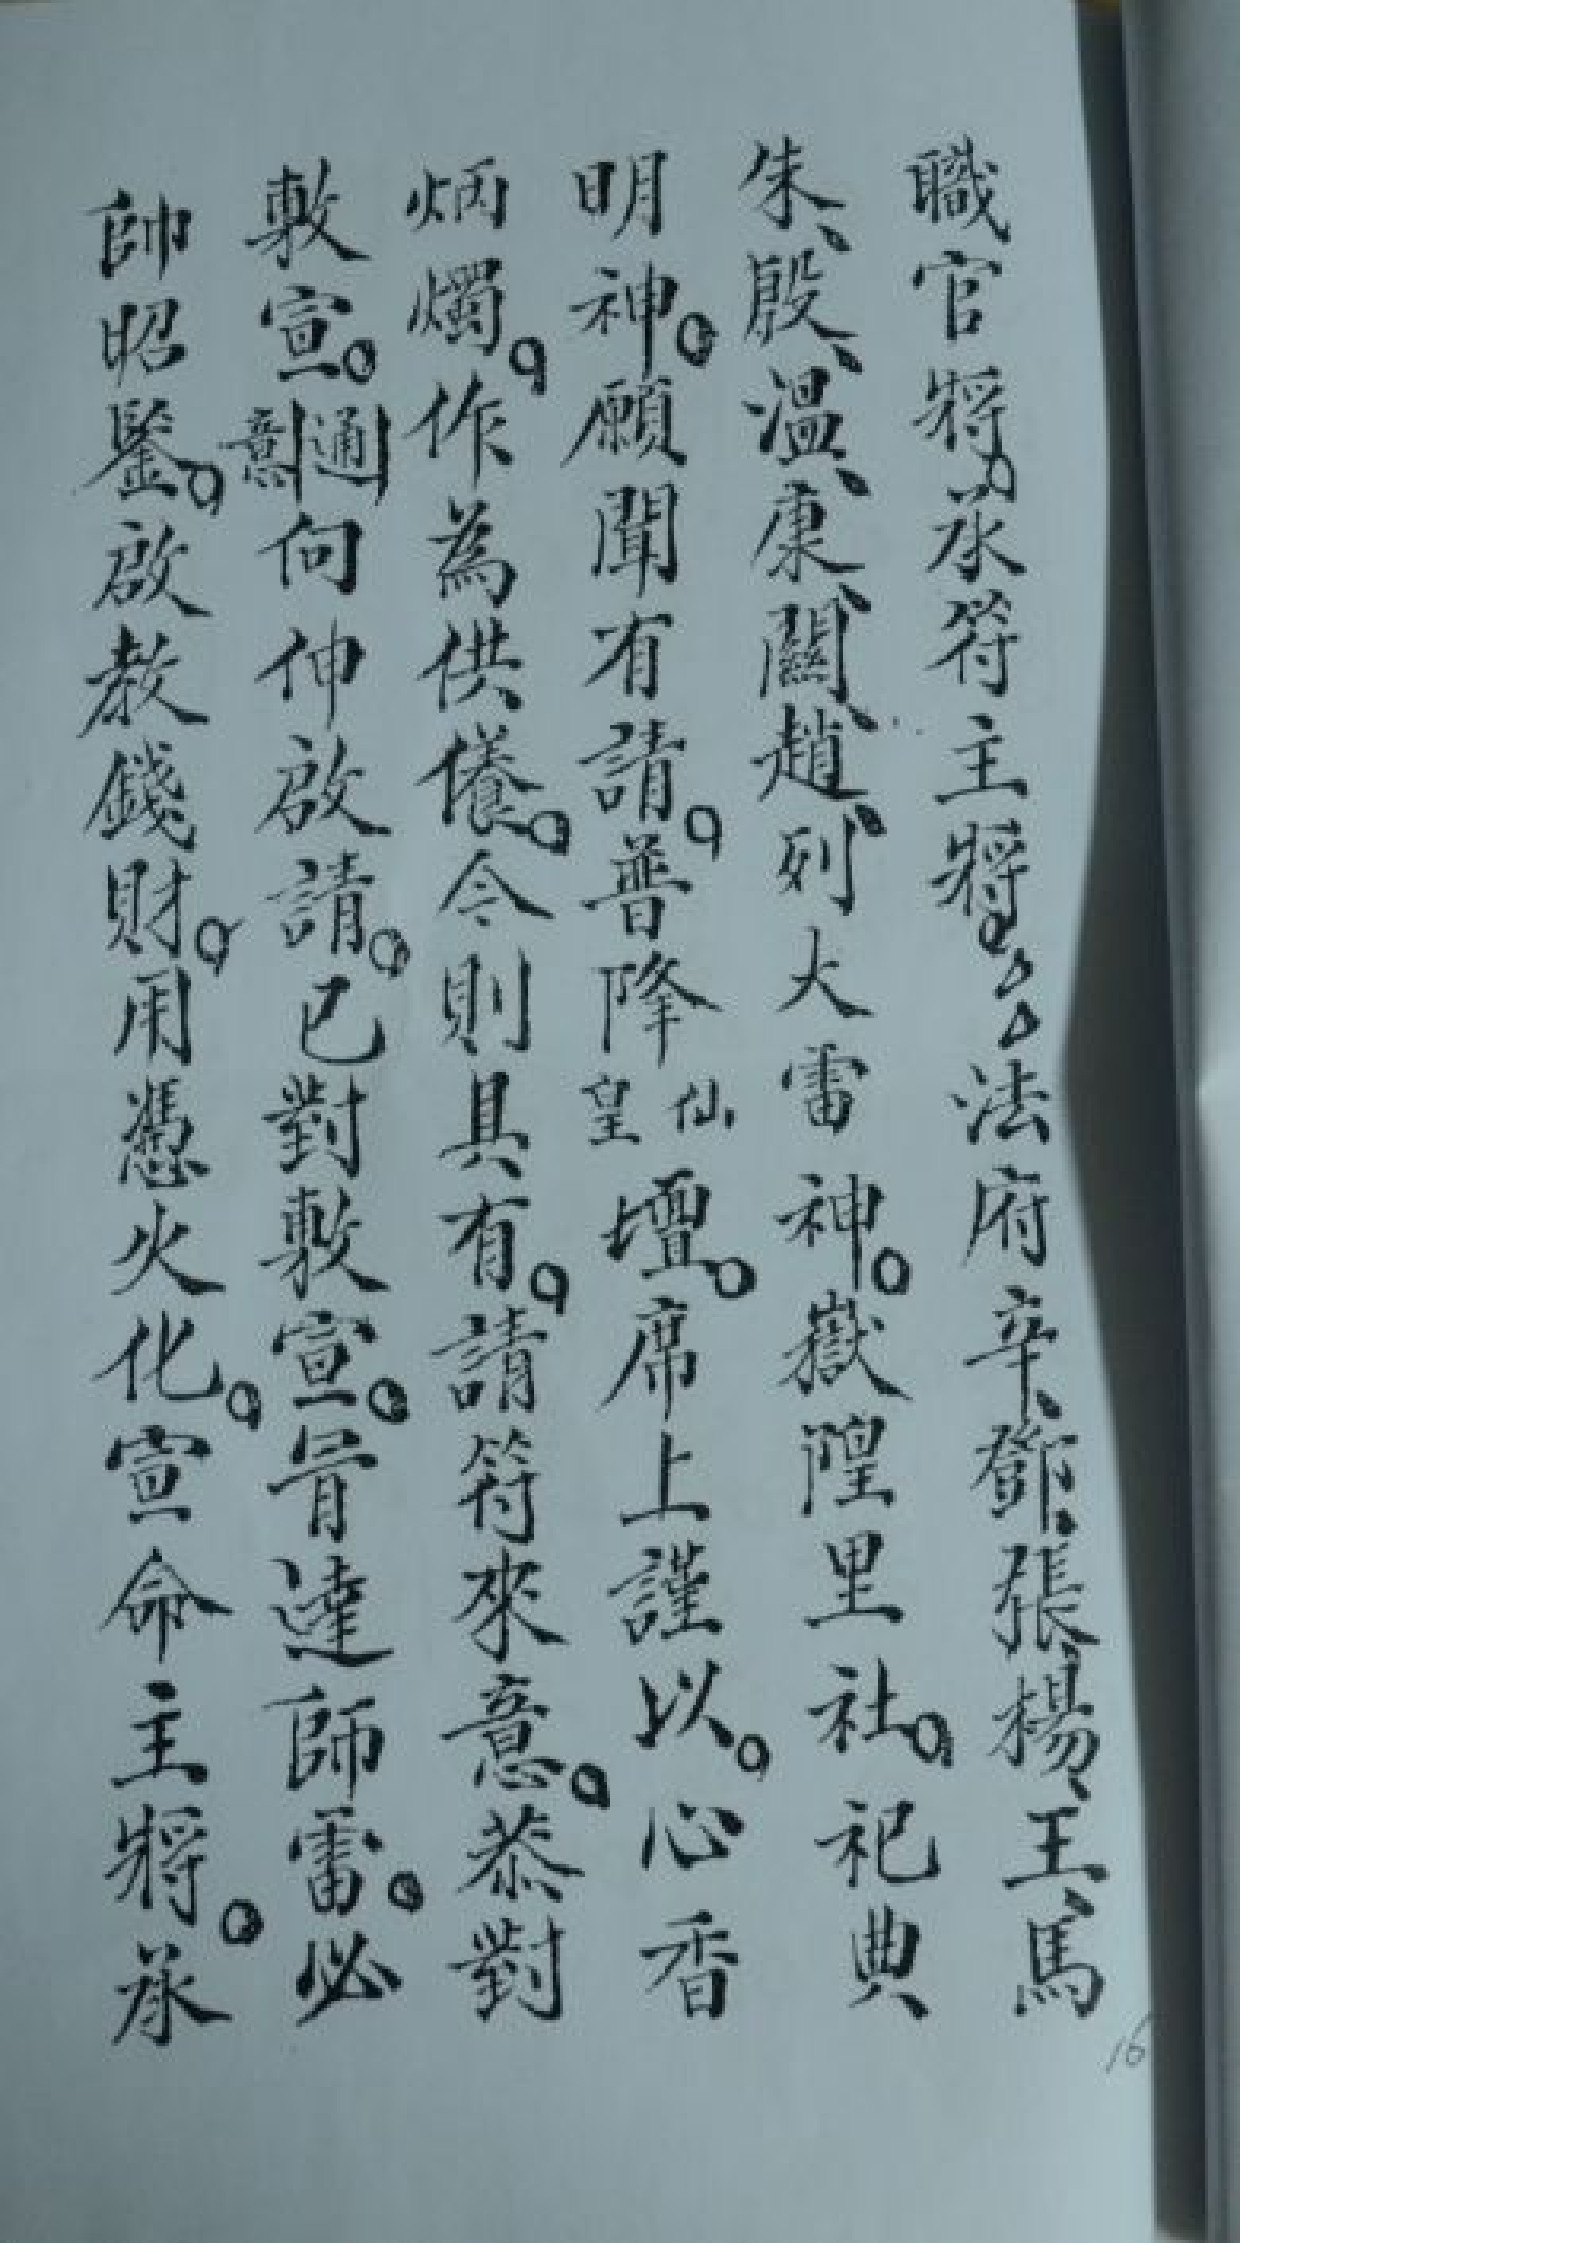 職官將。承符主將。、、法府辛、鄧、張、楊、王、馬
朱、殷、温、康、關、趙、列大雷神。嶽隍里社。祀典
明神。願聞有請。普降仙皇壇。席上謹以。心香
炳燭。作為供養。今則具有。請符來意。恭對
敷宣。通意向伸啟請。已對敷宣。胥達師雷。必
帥昭鑒。啟教錢財。用憑火化。宣命主將。承
16